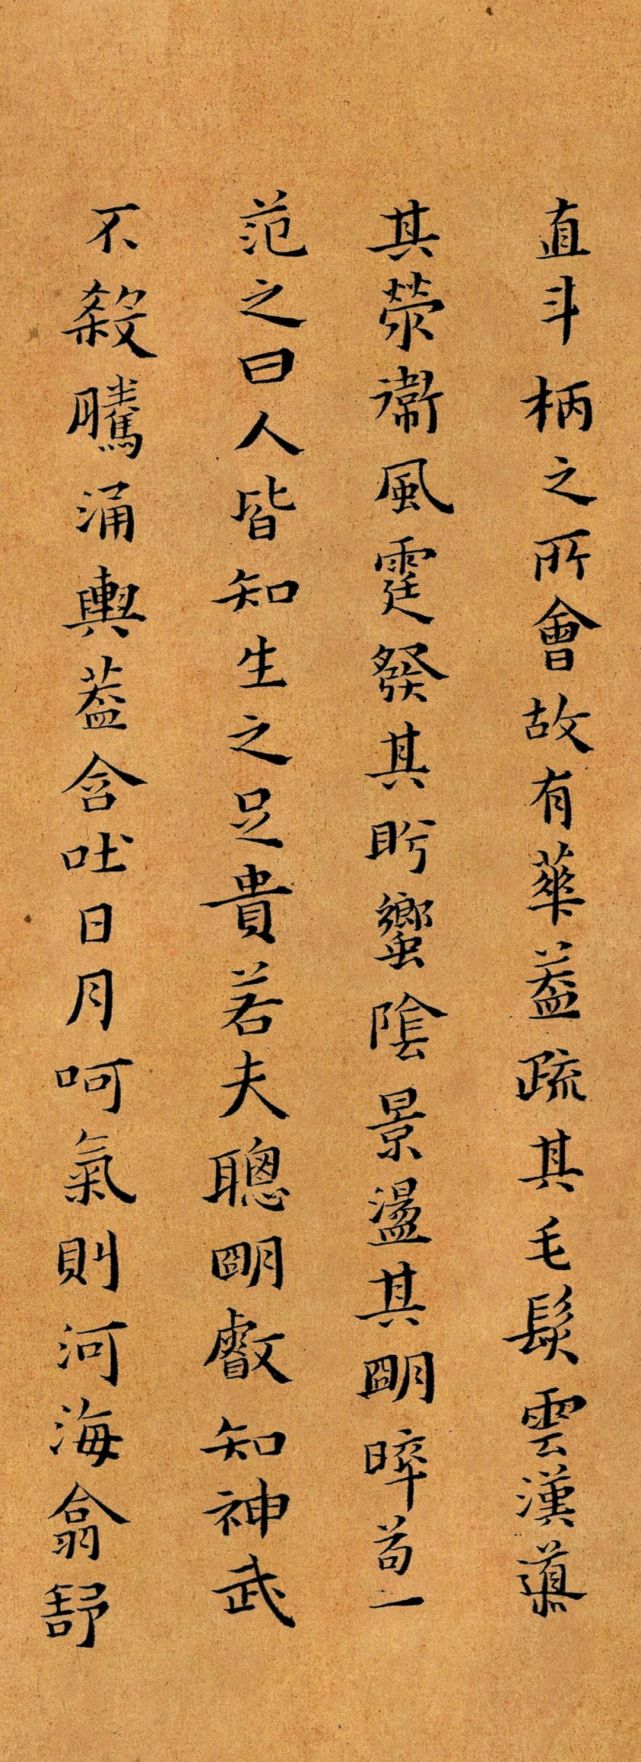 直斗柄之所會故有華葢疏其毛髮雲漢導
其滎衛風霆發其肸蠁陰景盪其明晬苟一
范之曰人皆知生之足貴若夫聰明叡知神武
不殺騰涌輿葢含吐日月呵氣則河海翕舒